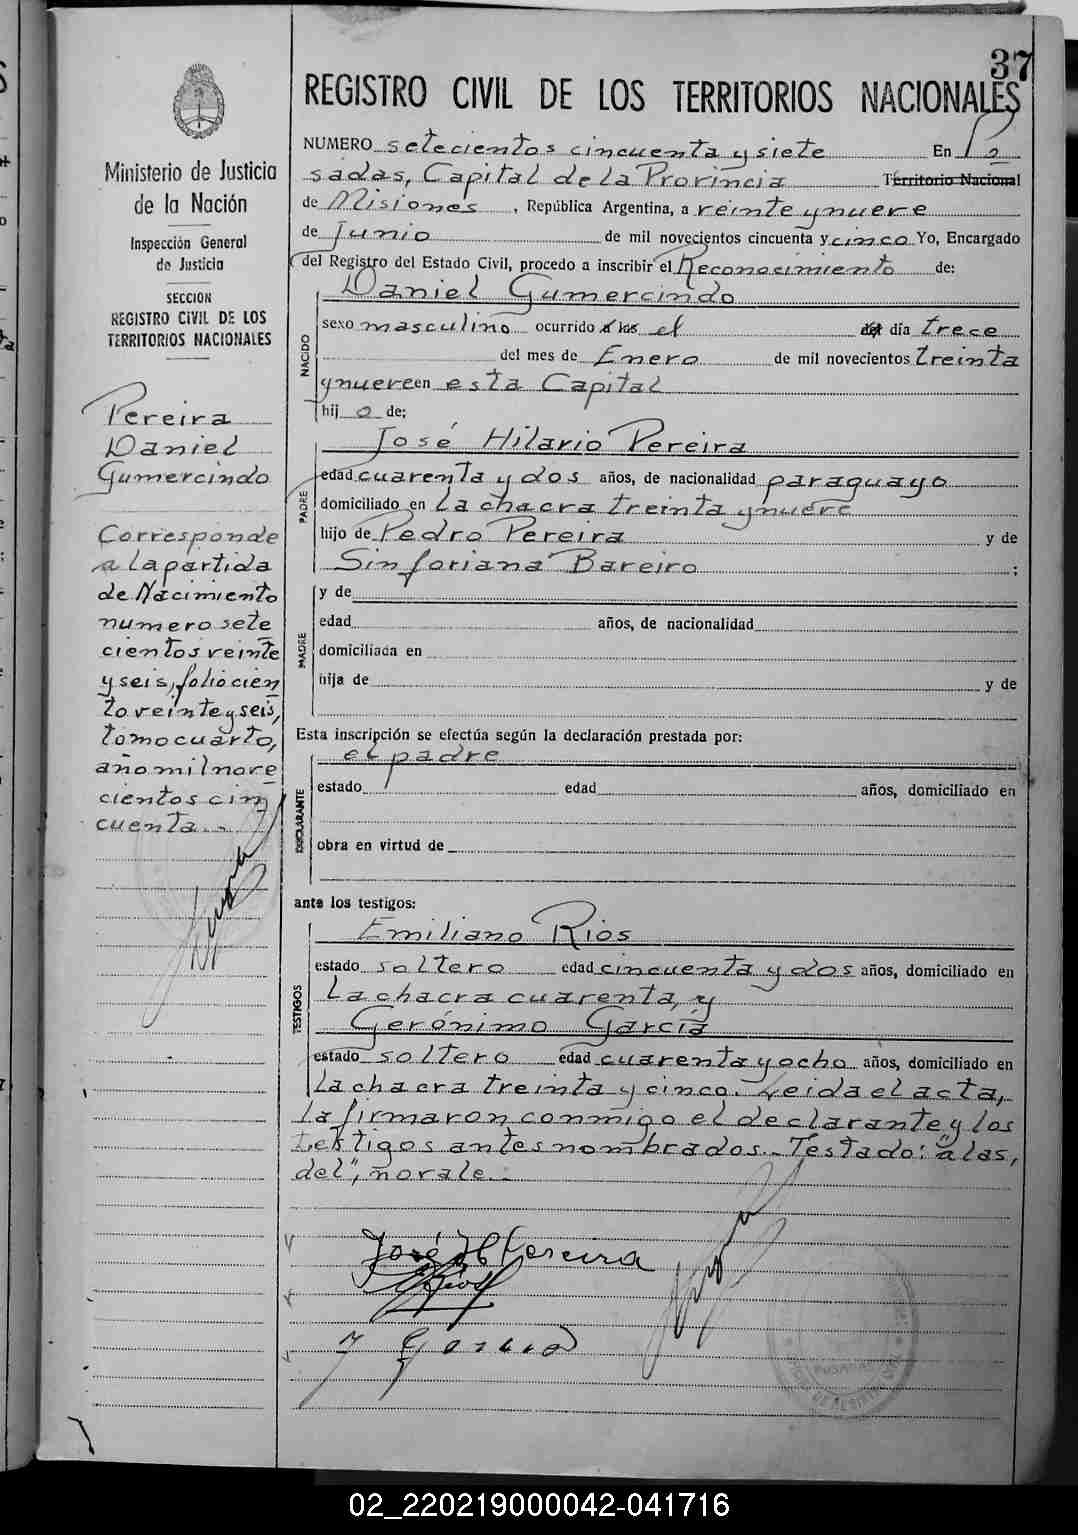 37
Ministerio de Justicia
de la Nación
Inspección General
de Justicia
SECCION
REGISTRO CIVIL DE LOS
TERRITORIOS NACIONALES
Pereira
Daniel
Gumercindo
Corresponde
a la partida
de Nacimiento
numero sete
cientos veinte
y seis, folio cien
to veinte y seis,
tomo cuarto,
año mil nove
cientos cin
cuenta.-
REGISTRO CIVIL DE LOS TERRITORIOS NACIONALES
NUMERO setecientos cincuenta y siete En Po
sadas, Capital de la Provincia Territorio Nacional
de Misiones, República Argentina, a veinte y nueve
de Junio de mil novecientos cincuenta y cinco Yo, Encargado
del Registro del Estado Civil, procedo a inscribir el Reconocimiento de:
Daniel Gumercindo
NACIDO
sexo masculino ocurrido a las el del día trece
del mes de Enero de mil novecientos treinta
y nueve en esta Capital
hijo de:
José Hilario Pereira
PADRE
edad cuarenta y dos años, de nacionalidad paraguayo
domiciliado en La chacra treinta y nueve
hijo de Pedro Pereira y de
Sinforiana Bareiro ;
MADRE
y de
edad años, de nacionalidad
domiciliada en
hija de y de
Esta inscripción se efectúa según la declaración prestada por:
el padre
DECLARANTE
estado edad años, domiciliado en
obra en virtud de
ante los testigos:
Emiliano Rios
TESTIGOS
estado soltero edad cincuenta y dos años, domiciliado en
La chacra cuarenta, y
Gerónimo García
estado soltero edad cuarenta y ocho años, domiciliado en
la chacra treinta y cinco. Leida el acta,
la firmaron conmigo el declarante y los
testigos antes nombrados.- Testado: "a las,
del", no vale.-
José H Pereira
Rios
J Garcia
POSADAS
02_220219000042-041716